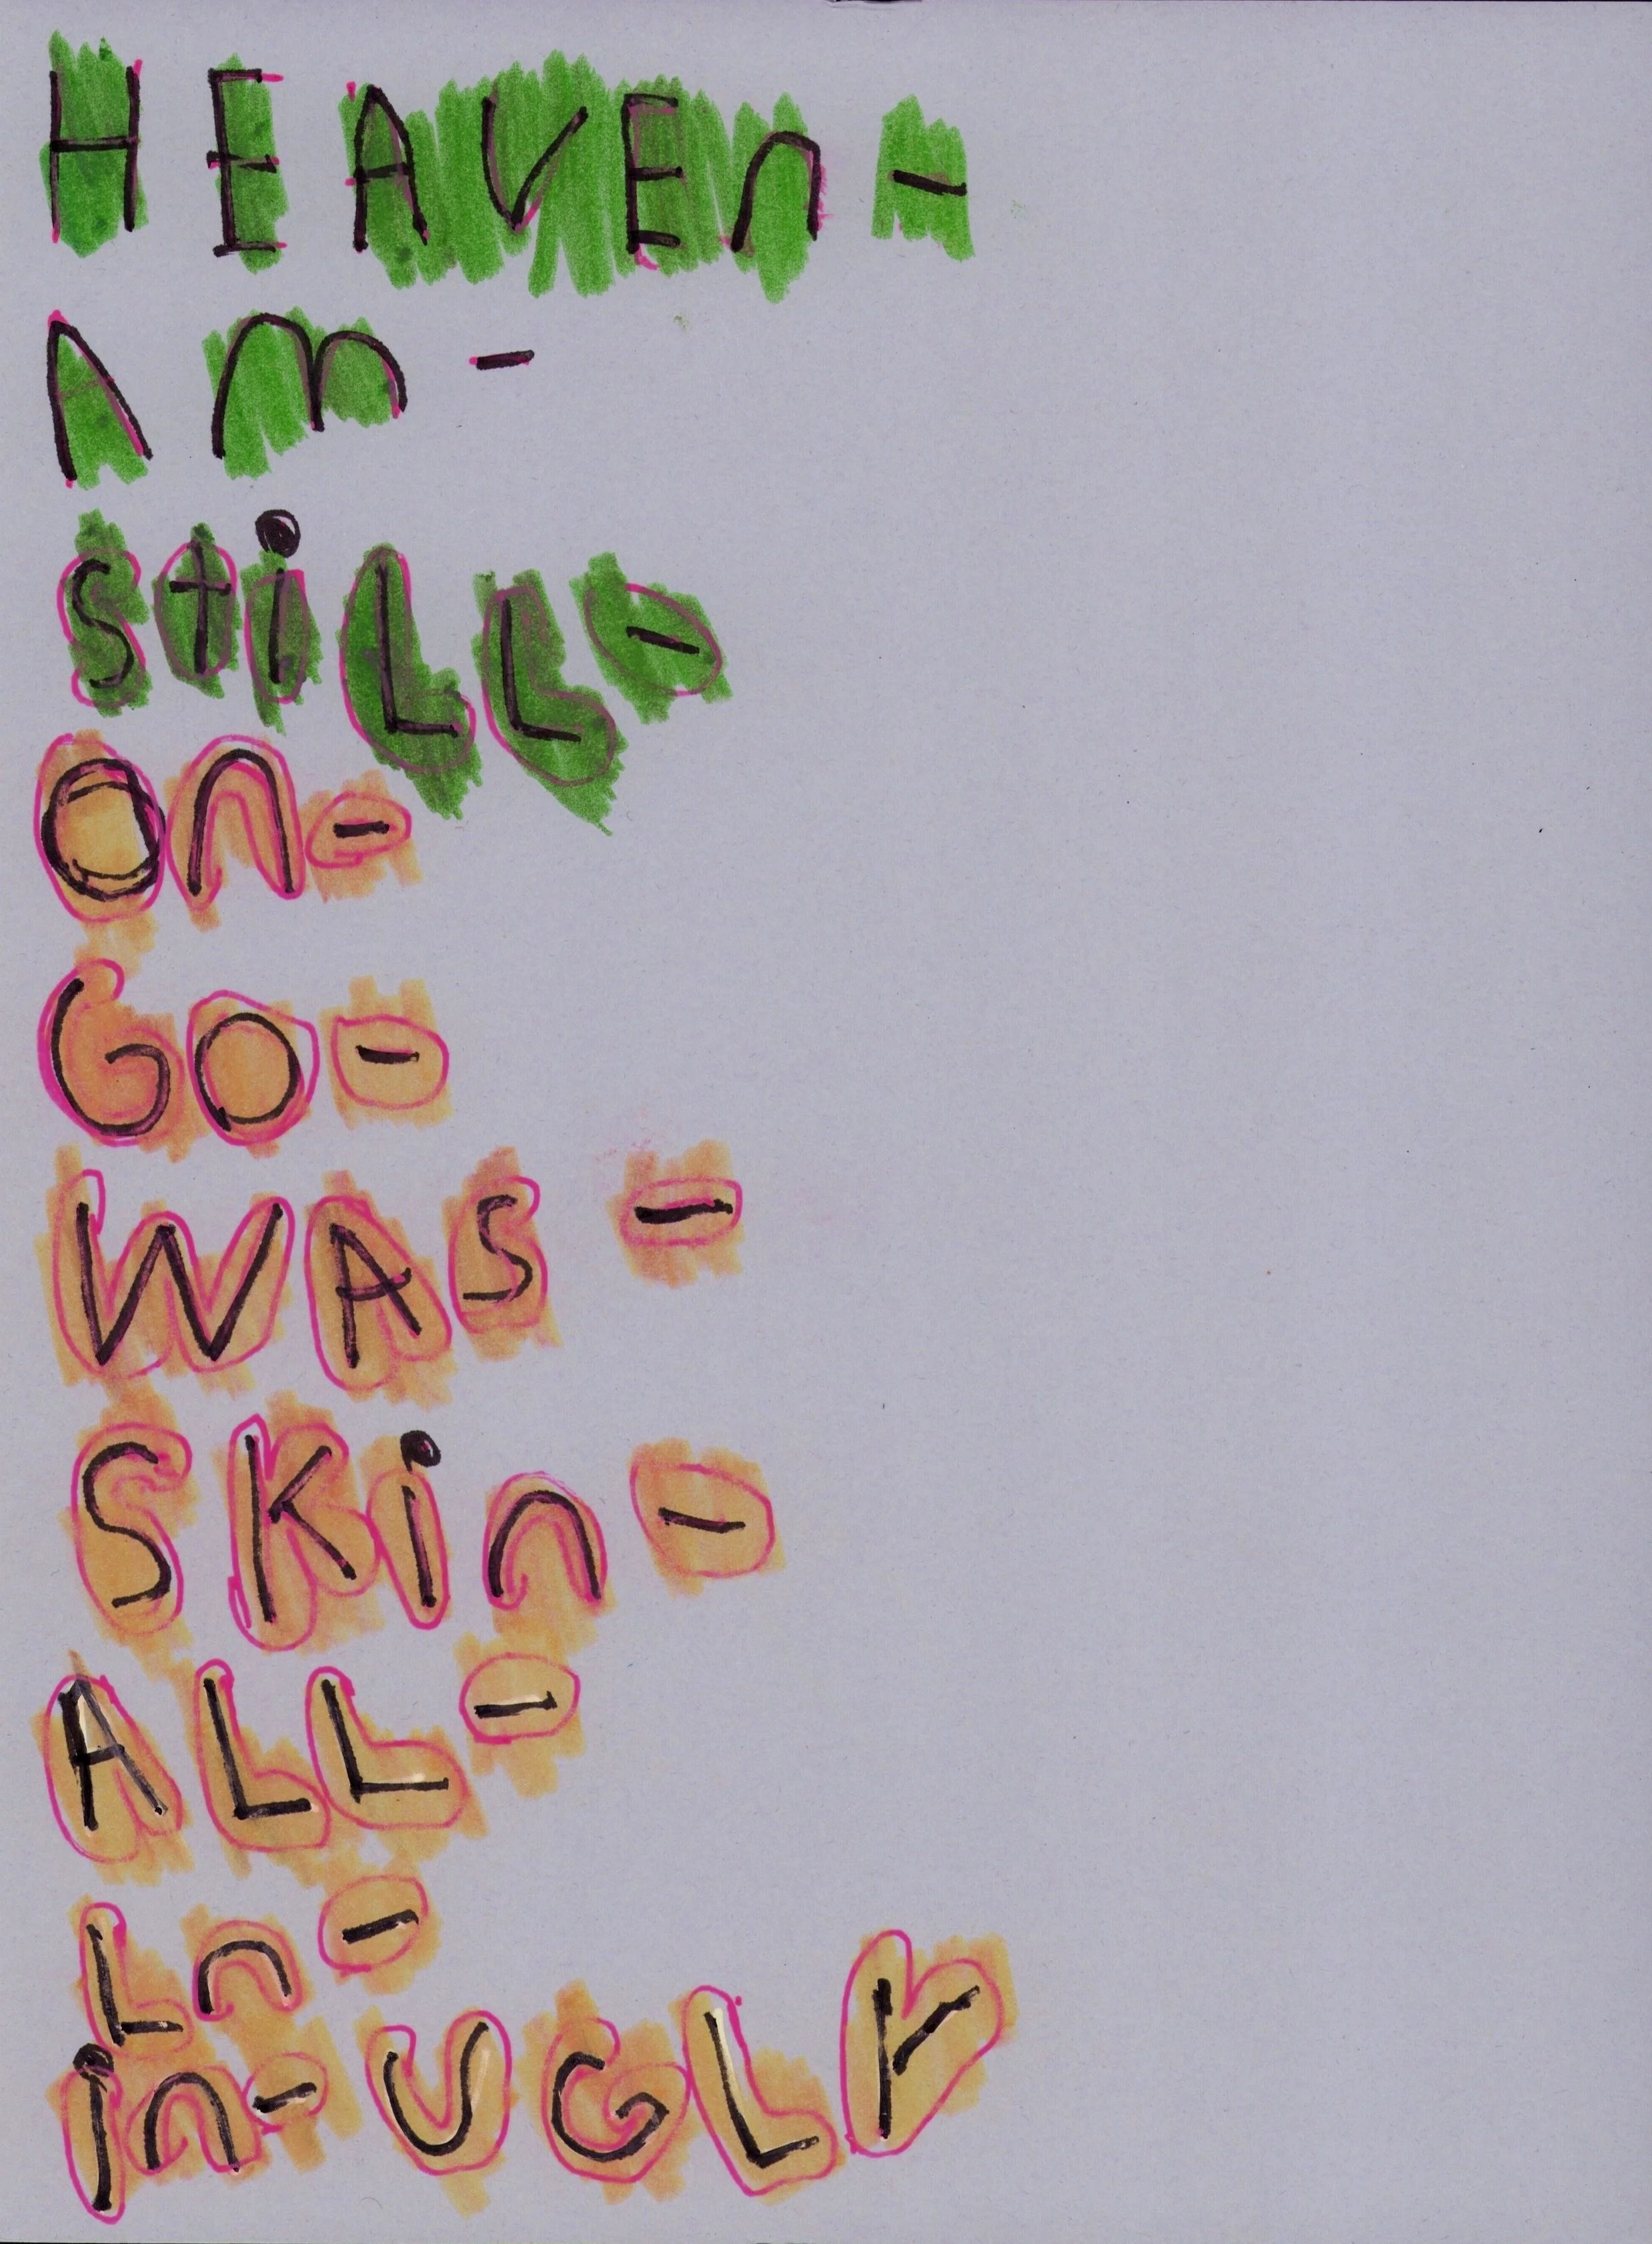 HEAVEn-
Am-
StiLL-
On-
GO-
WAS -
SKin-
ALL-
Ln-
in-UGLY